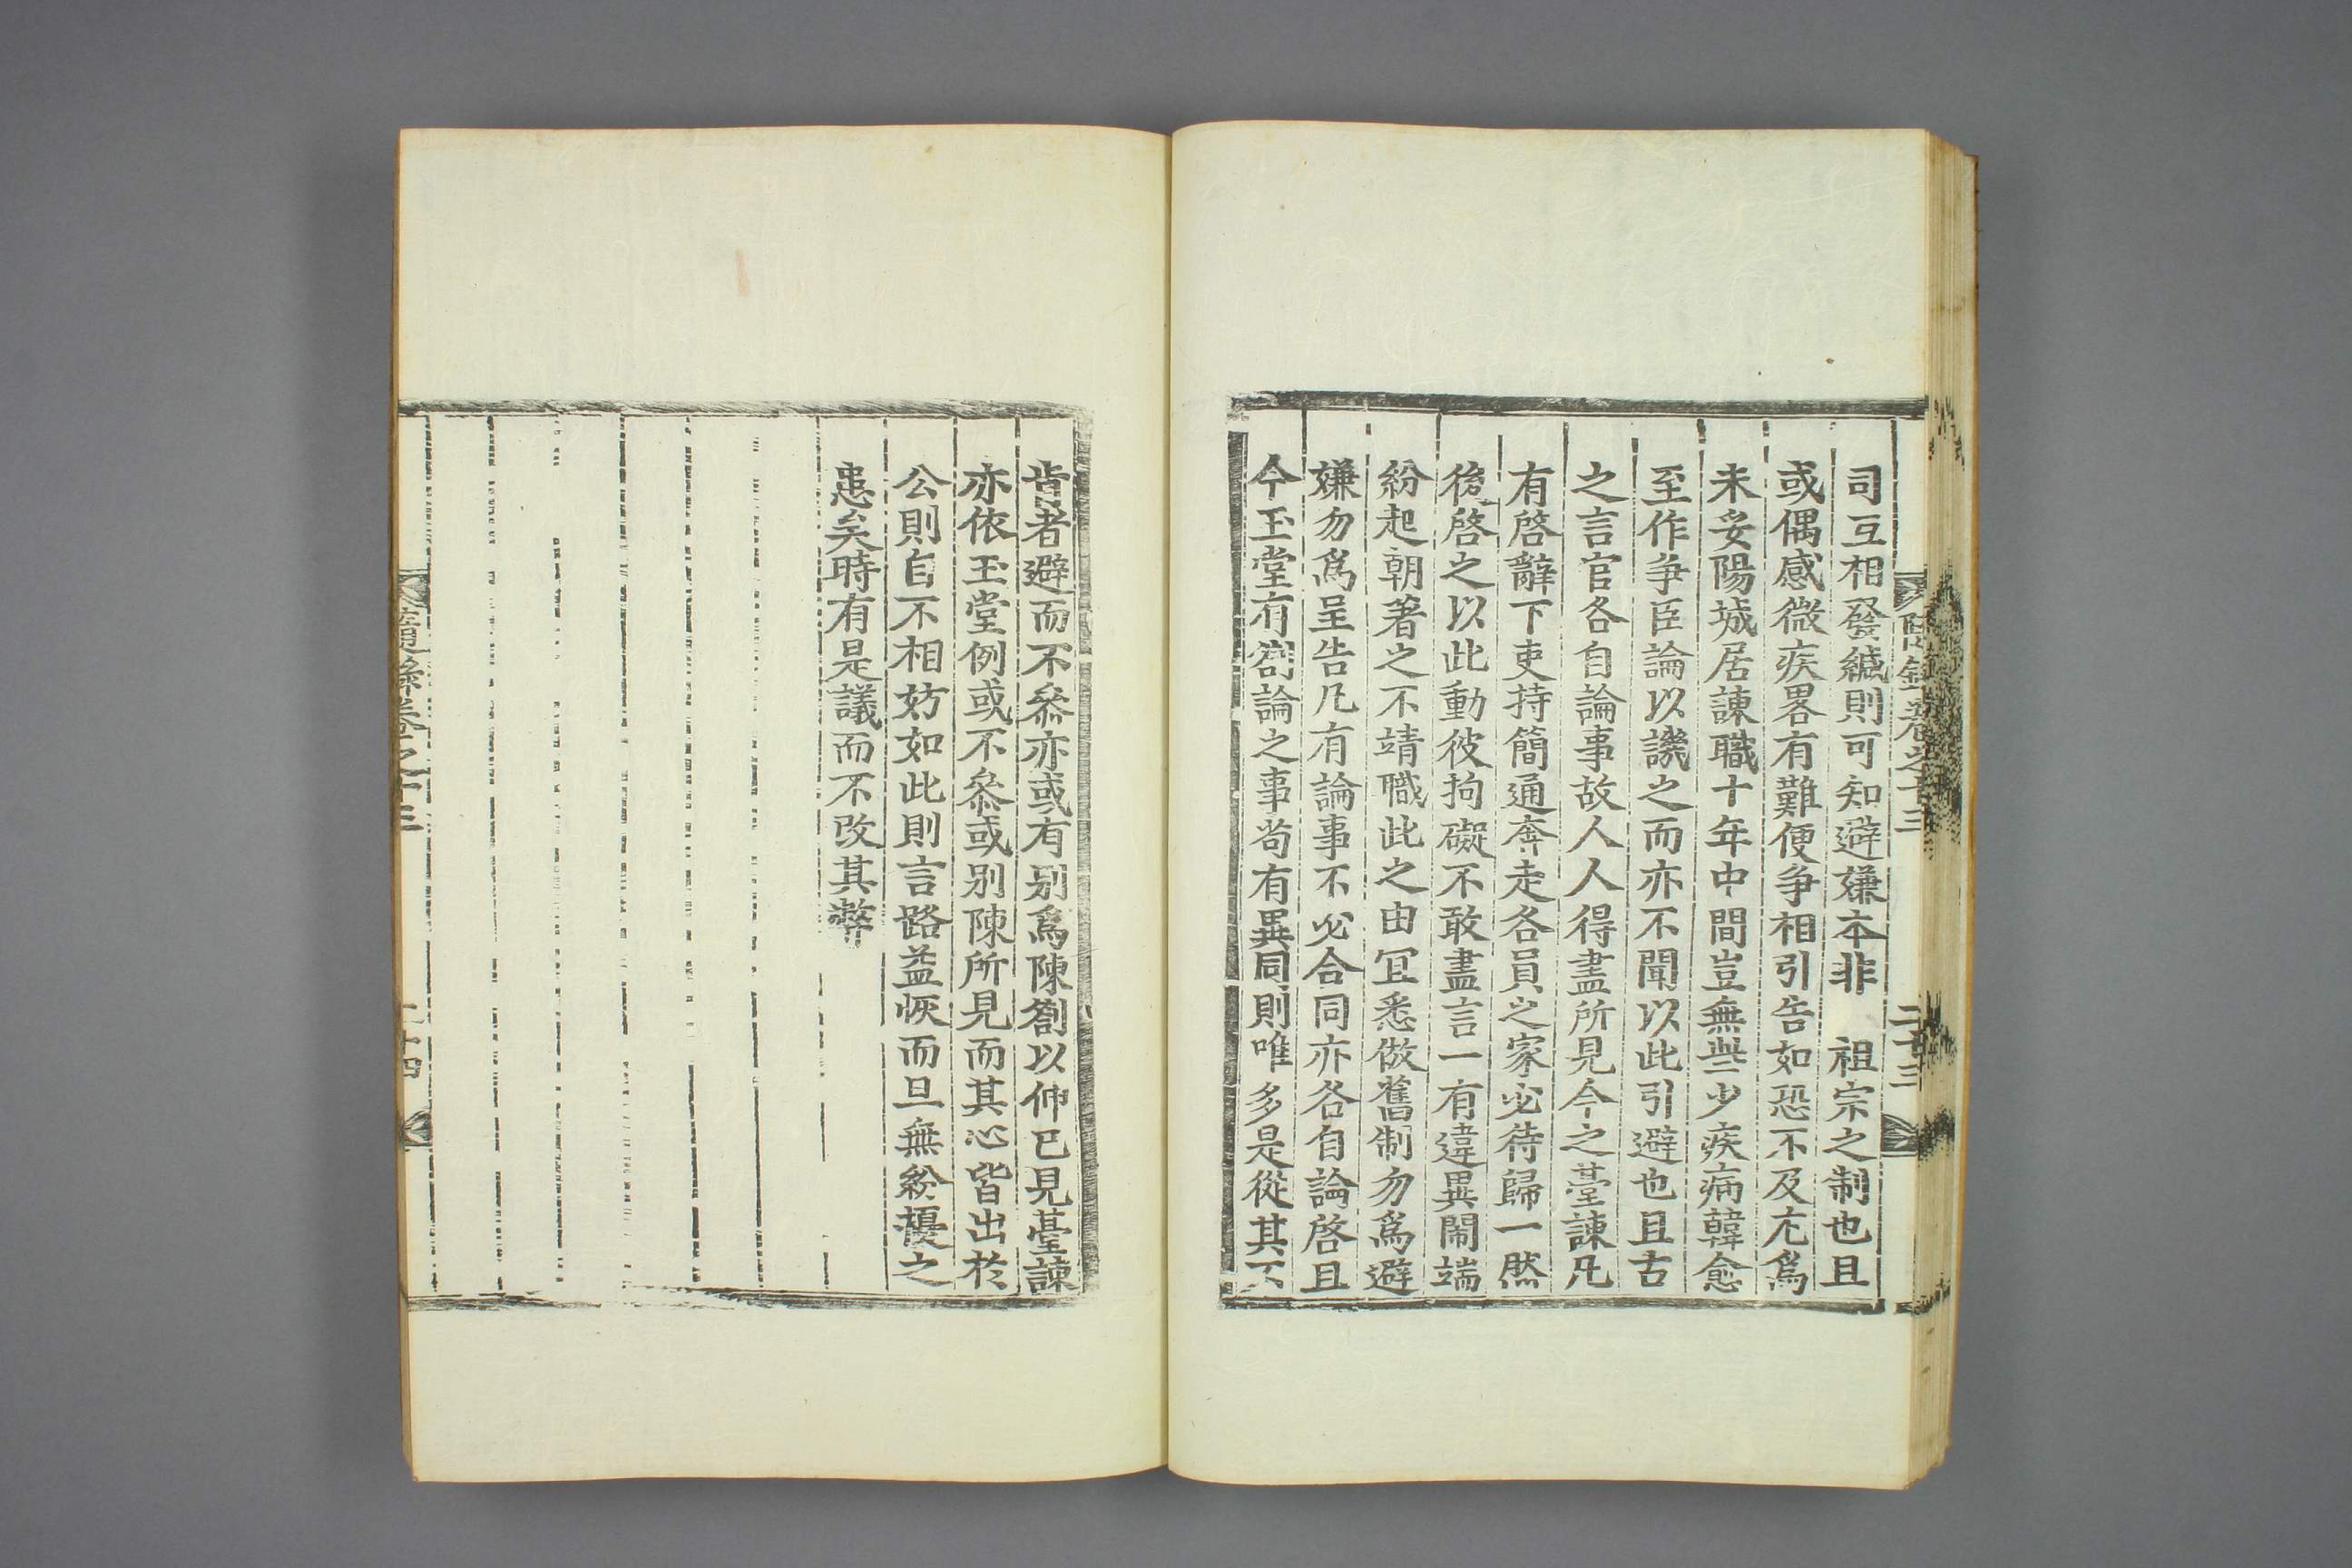 司互相發緘則可知避嫌本非　祖宗之制也且
或偶感微疾畧有難便爭相引告如恐不及尤爲
未妥陽城居諫職十年中間豈無些少疾病韓愈
至作爭臣論以譏之而亦不聞以此引避也且古
之言官各自論事故人人得盡所見今之臺諫凡
有啓辭下吏持簡通奔走各員之家必待歸一然
後啓之以此動彼拘礙不敢盡言一有違異鬧端
紛起朝著之不靖職此之由冝悉倣舊制勿爲避
嫌勿爲呈告凡有論事不必合同亦各自論啓且
今玉堂有劄論之事茍有異同則唯多是從其不
肯者避而不叅亦或有別爲陳劄以伸已見臺諫
亦依玉堂例或不叅或别陳所見而其心皆出於
公則自不相妨如此則言路益恢而旦無紛擾之
患矣時有是議而不改其弊
隨錄卷之十三
二十三
隨錄卷之十三
二十四